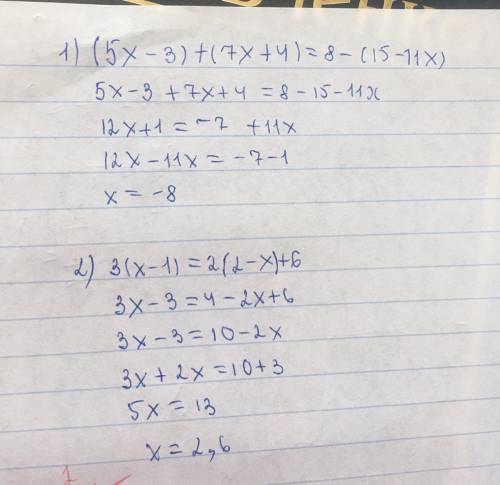 1) (5x-3)+(7x+4)=8-(15-11x)
5x-3+7x+4=8-15-11x
12x+1=-7 +11x
12x-11x=-7-1
x=-8
2) 3(x-1)=2(2-x)+6
3x-3=4-2x+6
3x-3=10-2x
3x+2x=10+3
5x=13
x=2,6